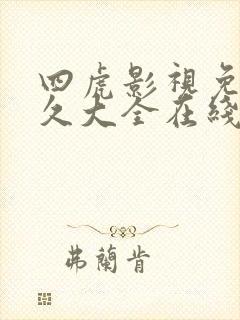 四虎影視免
久大全在綫
弗蘭肯